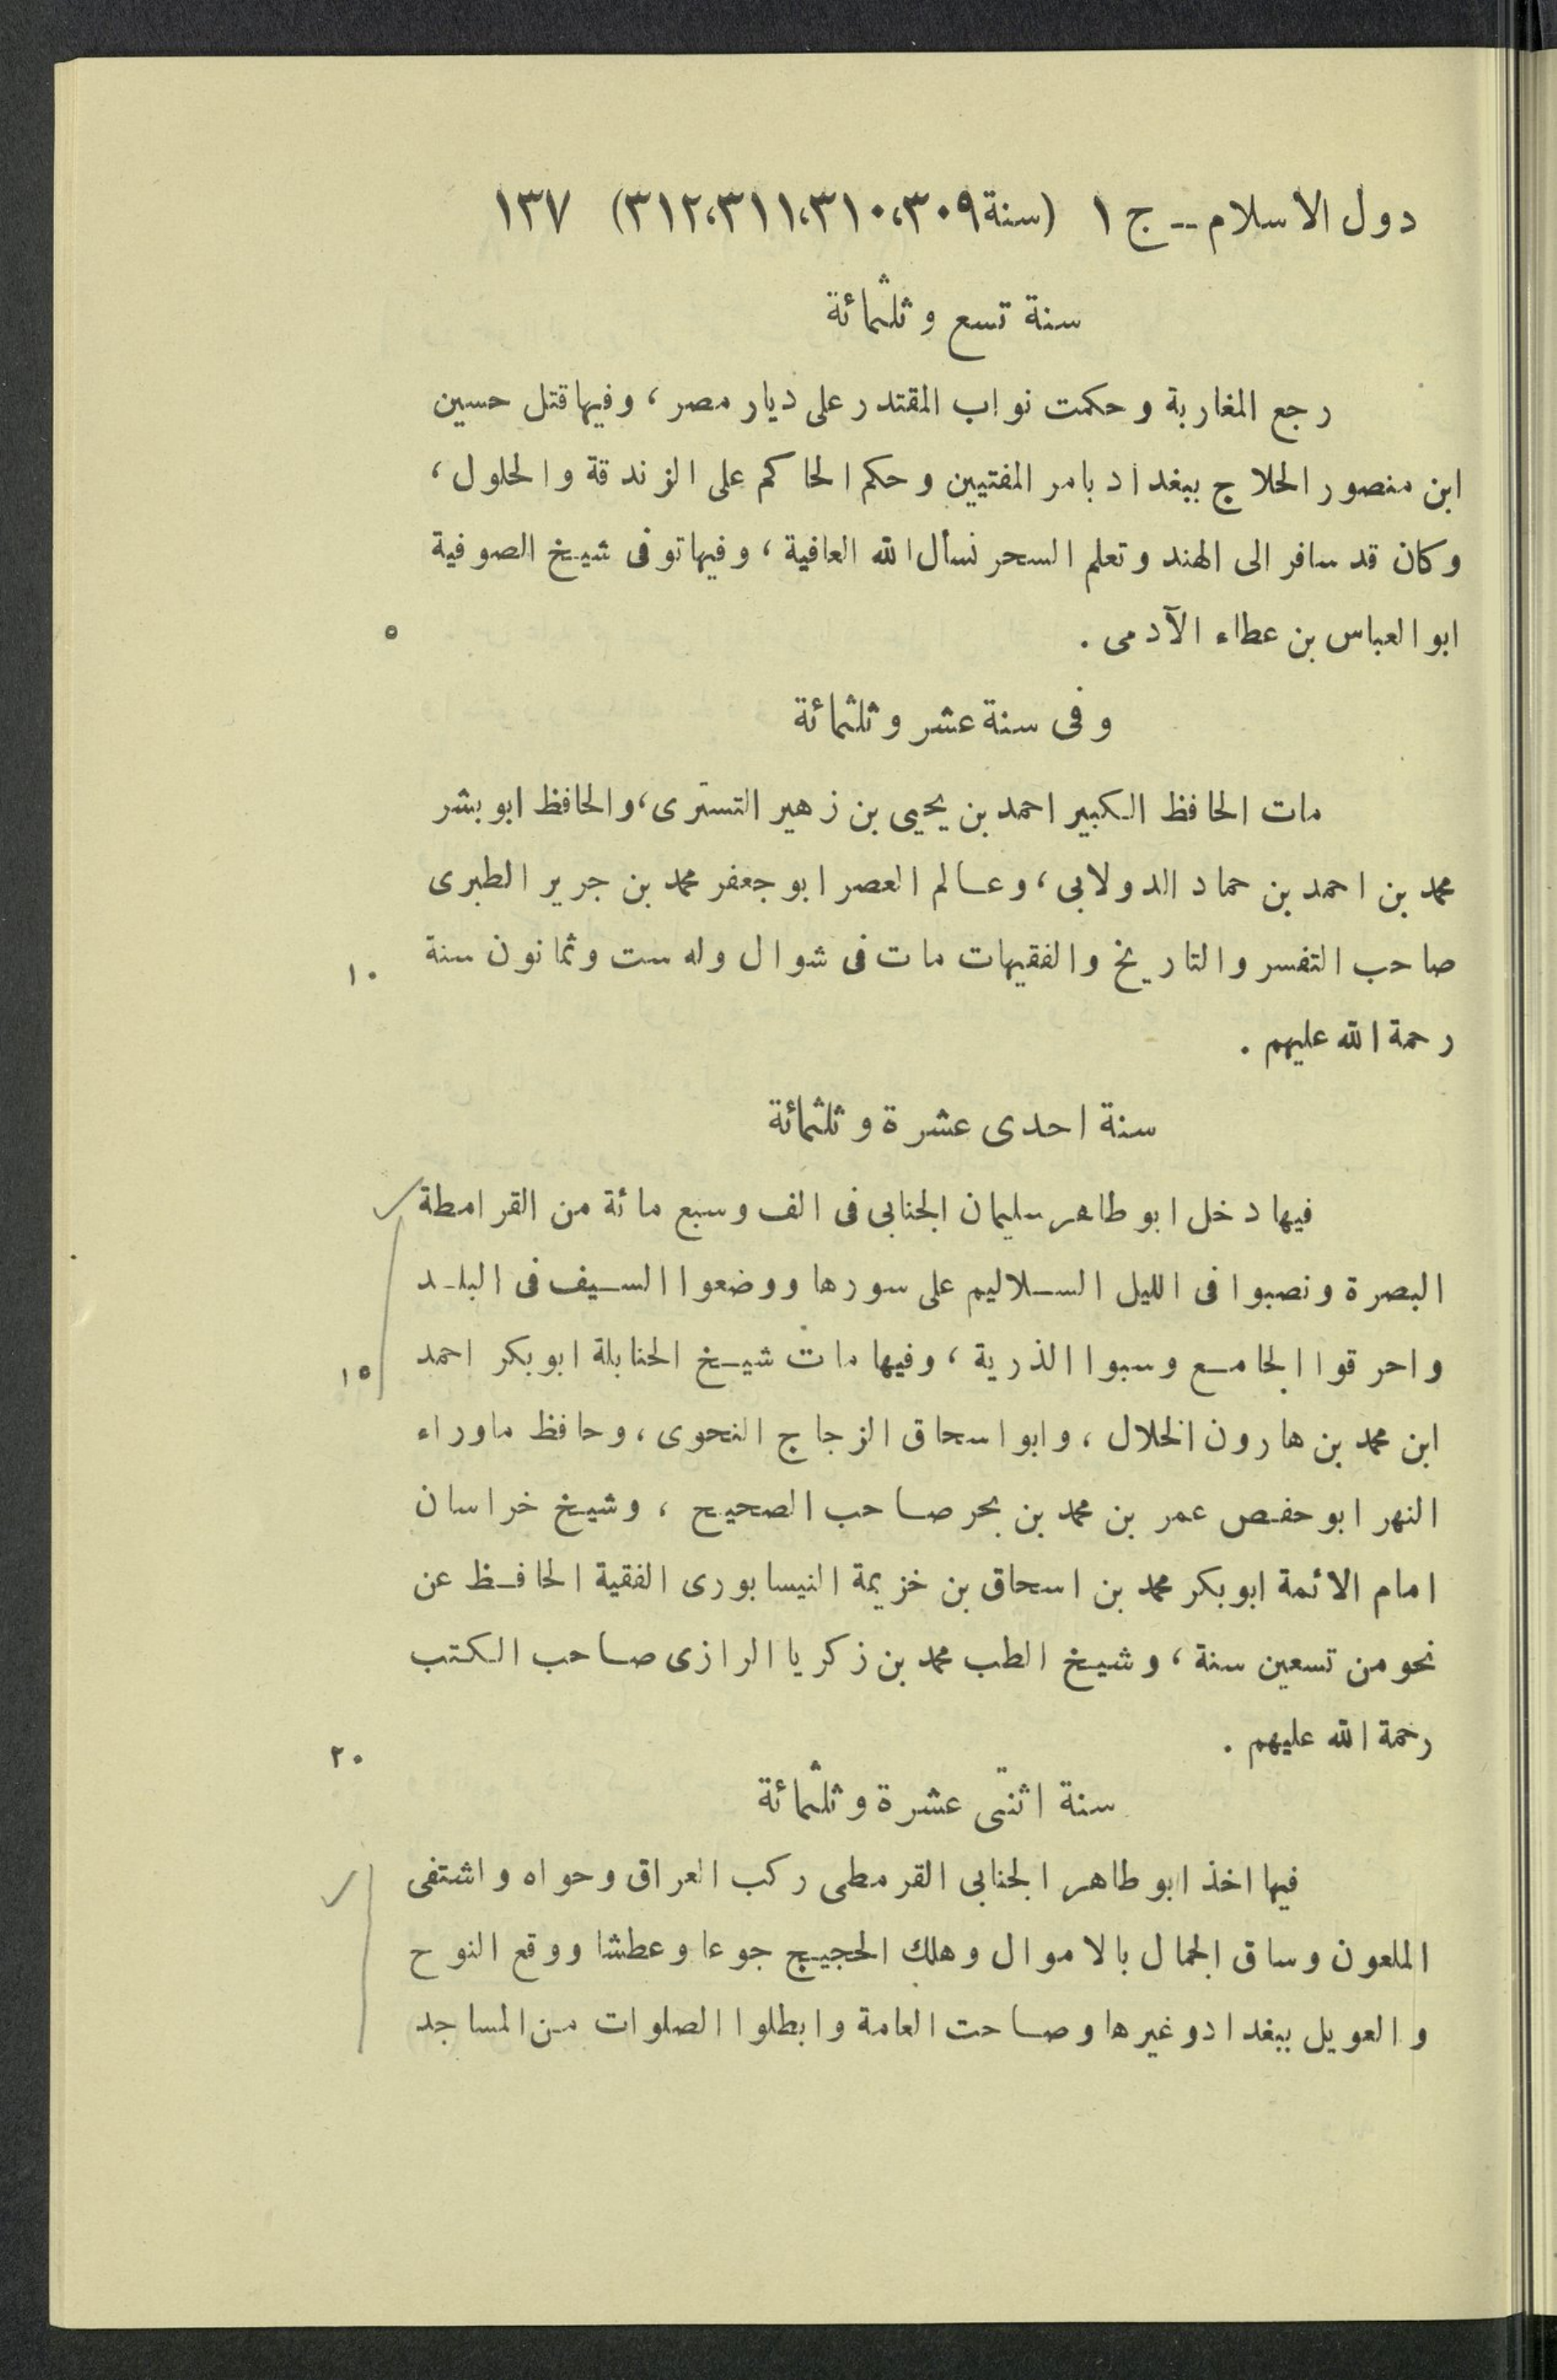 دول الاسلام -- ج ١ (سنة ٣٠٩،٣١٠،٣١١،٣١٢) ١٣٧
سنة تسع وثلثمائة
رجع المغاربة وحكمت نواب المقتدر على ديار مصر، وفيها قتل حسين
ابن منصور الحلاج ببغداد بامر المفتيين وحكم الحاكم على الزندقة والحلول،
وكان قد سافر الى الهند وتعلم السحر نسأل الله العافية، وفيها توفى شيخ الصوفية
ابو العباس بن عطاء الآدمى. ٥
وفى سنة عشر وثلثمائة
مات الحافظ الكبير احمد بن يحيى بن زهير التسترى، والحافظ ابو بشر
محمد بن احمد بن حماد الدولابى، وعالم العصر ابو جعفر محمد بن جرير الطبرى
صاحب التفسر والتاريخ والفقيهات مات فى شوال وله ست وثمانون سنة ١٠
رحمة الله عليهم.
سنة احدى عشرة وثلثمائة
فيها دخل ابو طاهر سليمان الجنابى فى الف وسبع مائة من القرامطة
البصرة ونصبوا فى الليل السلاليم على سورها ووضعوا السيف فى البلد
واحرقوا الجامع وسبوا الذرية، وفيها مات شيخ الحنابلة ابو بكر احمد ١٥
ابن محمد بن هارون الخلال، وابو اسحاق الزجاج النحوى، وحافظ ماوراء
النهر ابو حفص عمر بن محمد بن بحر صاحب الصحيح، وشيخ خراسان
امام الائمة ابو بكر محمد بن اسحاق بن خزيمة النيسابورى الفقية الحافظ عن
نحو من تسعين سنة، وشيخ الطب محمد بن زكريا الرازى صاحب الكتب
رحمة الله عليهم. ٢٠
سنة اثنتى عشرة وثلثمائة
فيها اخذ ابو طاهر الجنابى القرمطى ركب العراق وحواه واشتفى
الملعون وساق الجمال بالاموال وهلك الحجيج جوعا وعطشا ووقع النوح
والعويل ببغداد وغيرها وصاحت العامة وابطلوا الصلوات من المساجد